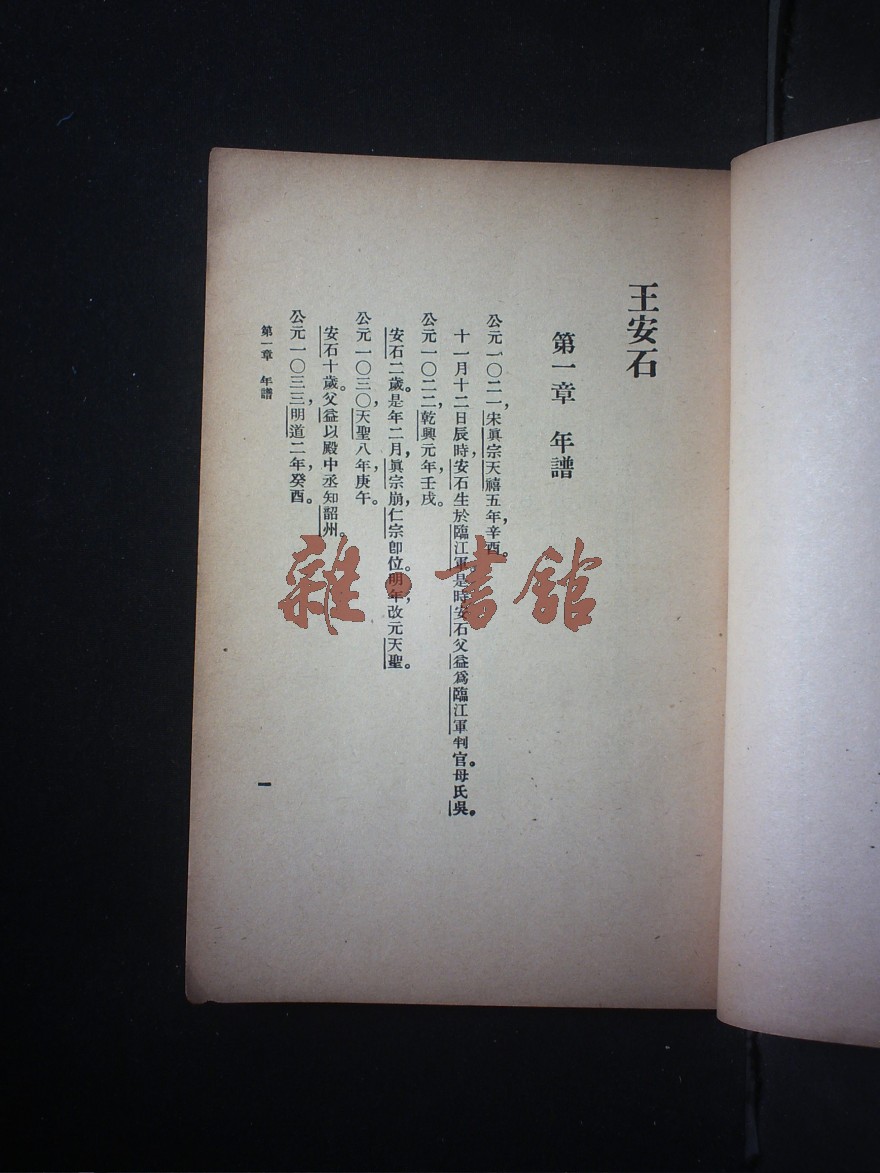 王安石
第一章 年譜
公元一〇二一，宋眞宗天禧五年，辛酉。
十一月十二日辰時，安石生於臨江軍。是時安石父益爲臨江軍判官。母氏吳。
公元一〇二二，乾興元年，壬戌。
安石二歲。是年二月，眞宗崩，仁宗卽位。明年，改元天聖。
公元一〇三〇，天聖八年，庚午。
安石十歲。父益以殿中丞知韶州。
公元一〇三三，明道二年，癸酉。
第一章 年譜
一
雜·書館